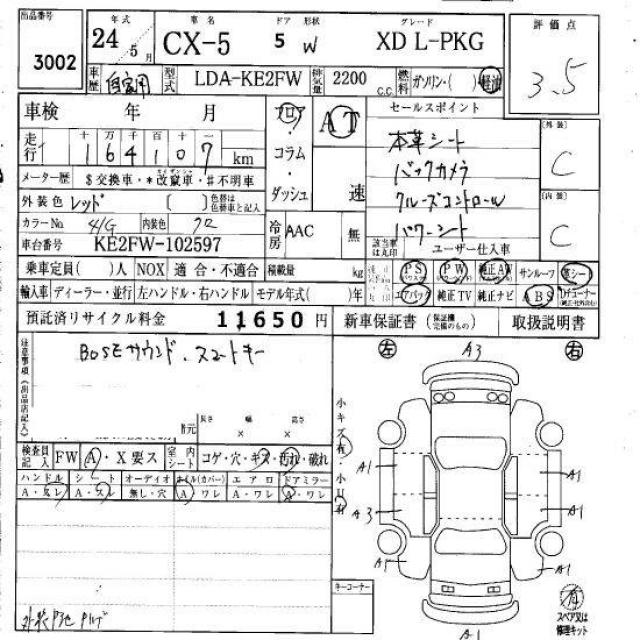 出品番号 3002
年式 24年 5月
車名 CX-5
ドア 形状 5 W
グレード XD L-PKG
評価点 3.5
車歴 自家用
型式 LDA-KE2FW
排気量 2200 C.C.
燃料 ガソリン・( ) 軽油
車検 年 月
フロア・コラム・ダッシュ
AT 速
セールスポイント
本革シート
バックカメラ
クルーズコントロール
パワーシート
該当車は丸印 ユーザー仕入車
[外装] C
[内装] C
走行 十 万 千 百 十 一
164107 km
メーター歴 $交換車・*改竄車・#不明車
外装色 レッド [ ] 色替は色替車と記入
カラーNo 41G 内装色 クロ
冷房 AAC 無
車台番号 KE2FW-102597
乗車定員( )人 NOX 適合・不適合 積載量 kg
PS PW 純正AW サンルーフ 革シート
輸入車 ディーラー・並行 左ハンドル・右ハンドル モデル年式( )年
エアバック 純正TV 純正ナビ ABS
預託済リサイクル料金 11650 円
新車保証書 (保証欄完備のもの) 取扱説明書
注意事項(出品店記入)
BOSEサウンド、スマートキー
長さ 幅 高さ
諸元 × ×
検査員記入 FW A・X要ス
室内シート コゲ・穴・キズ・汚れ・破れ
ハンドル シート オーディオ ホイル(カバー) エアロ ドアミラー
A・スレ A・スレ 無し・穴 A ワレ A・ワレ A・ワレ
小キズ有・小凹有
左 A3 右
A1 A1
A3 A1
A1 A1
A1
キーコーナー
有
スペア又は修理キット